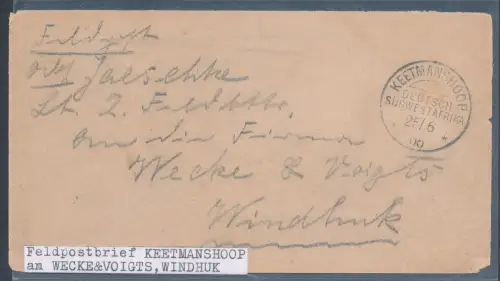 Feldpost
Jaeschke
Lt. 2. Feldbttr.
an die Firma
Wecke & Voigts
Windhuk
KEETMANSHOOP
DEUTSCH-
SÜDWESTAFRIKA
25/6
Feldpostbrief KEETMANSHOOP
an WECKE&VOIGTS,WINDHUK